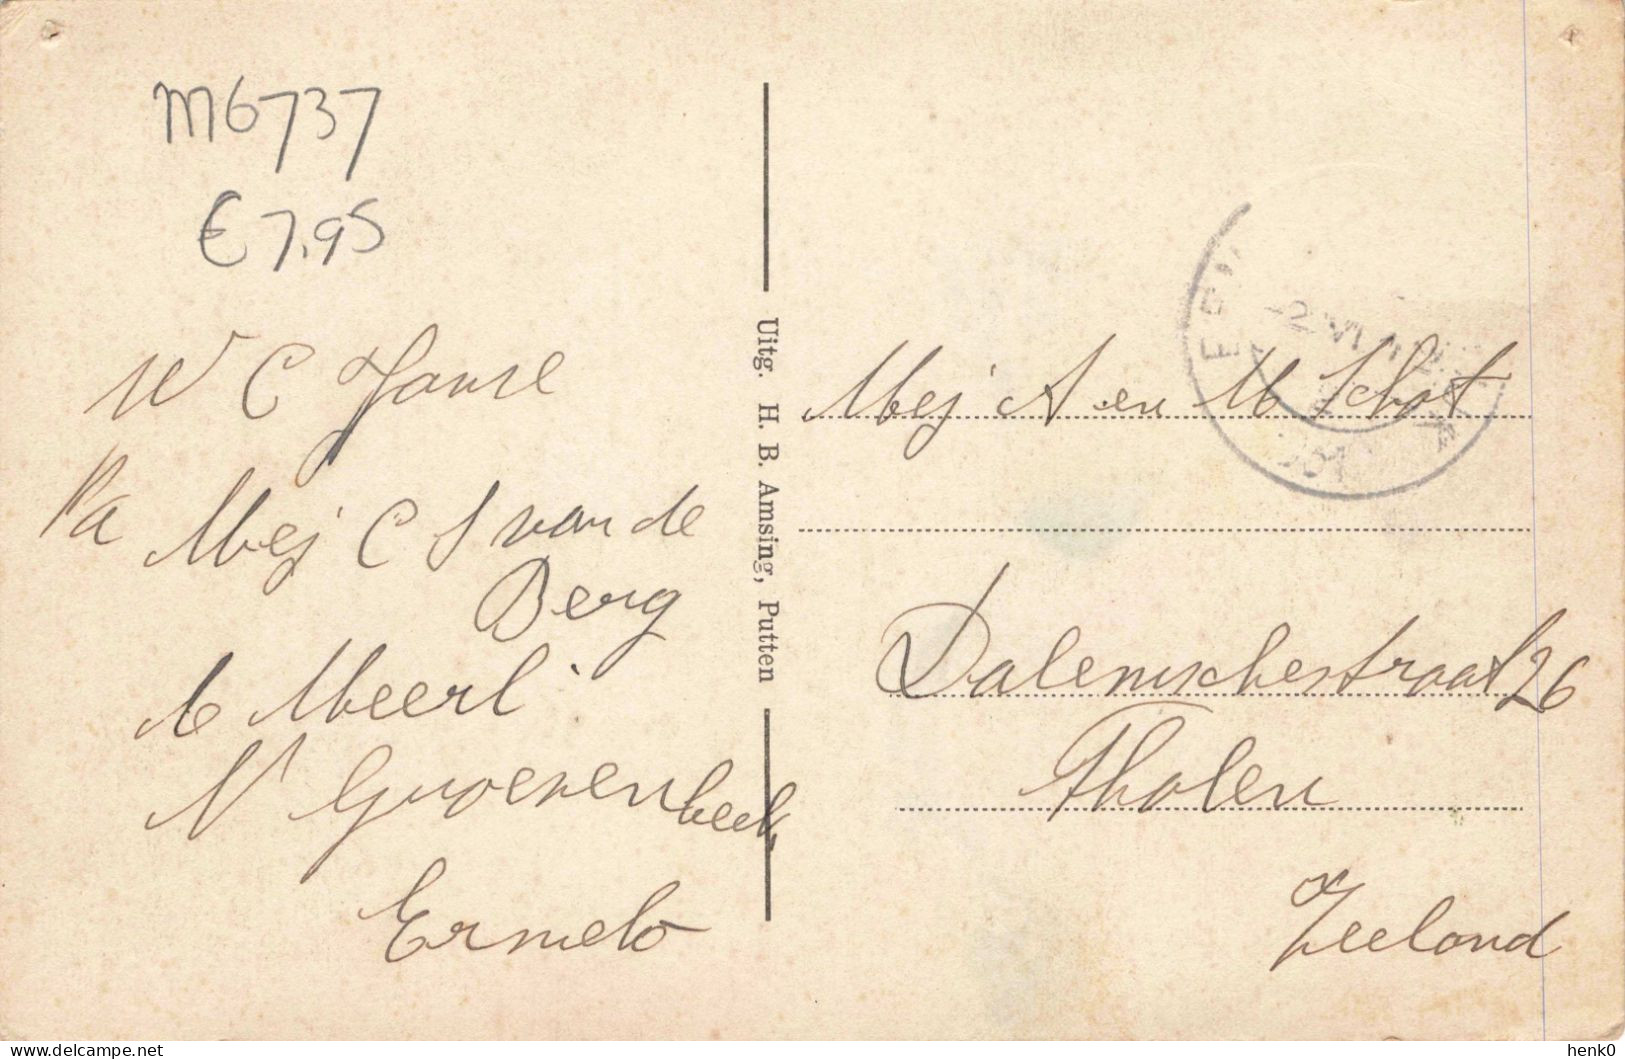 M6737
€ 7,95
W C Janse
P/a Mej C J van de
Berg
N Groevenbeek
Ermelo
Uitg. H. B. Amsing, Putten
Mej A en M Schot
Dalemschestraat 26
Tholen
Zeeland
www.delcampe.net
henk0